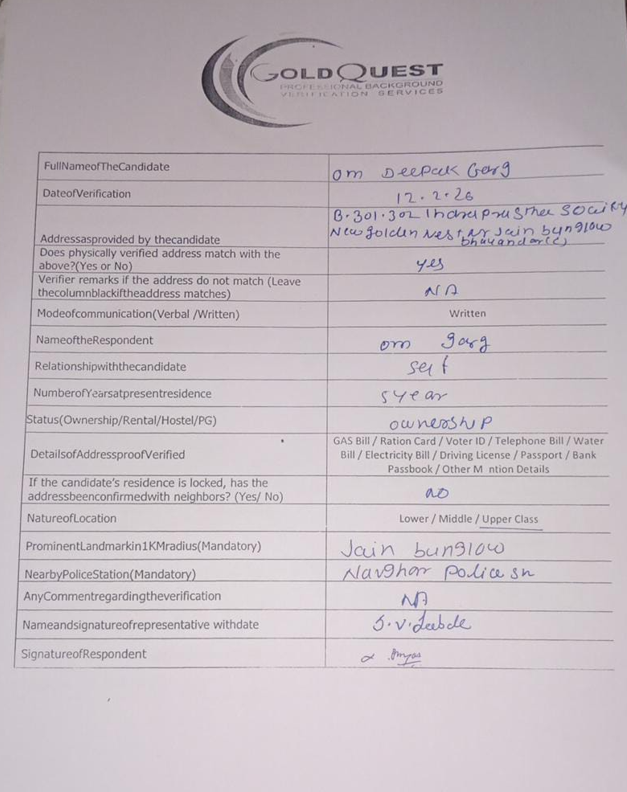 GOLDQUEST
PROFESSIONAL BACKGROUND
VERIFICATION SERVICES
FullNameofTheCandidate om Deepak Garg
DateofVerification 12.2.26
B.301.302 Indraprasthe society
Addressasprovided by thecandidate New golden Nest, nr Jain bunglow
bhayandar(E)
Does physically verified address match with the
above?(Yes or No) yes
Verifier remarks if the address do not match (Leave
thecolumnblackiftheaddress matches) NA
Modeofcommunication(Verbal /Written) Written
NameoftheRespondent om garg
Relationshipwiththecandidate self
NumberofYearsatpresentresidence 5 year
Status(Ownership/Rental/Hostel/PG) ownership
DetailsofAddressproofVerified GAS Bill / Ration Card / Voter ID / Telephone Bill / Water
Bill / Electricity Bill / Driving License / Passport / Bank
Passbook / Other M ntion Details
If the candidate's residence is locked, has the
addressbeenconfirmedwith neighbors? (Yes/ No) no
NatureofLocation Lower / Middle / Upper Class
ProminentLandmarkin1KMradius(Mandatory) Jain bunglow
NearbyPoliceStation(Mandatory) Navghar police sn
AnyCommentregardingtheverification NA
Nameandsignatureofrepresentative withdate S.V.
SignatureofRespondent